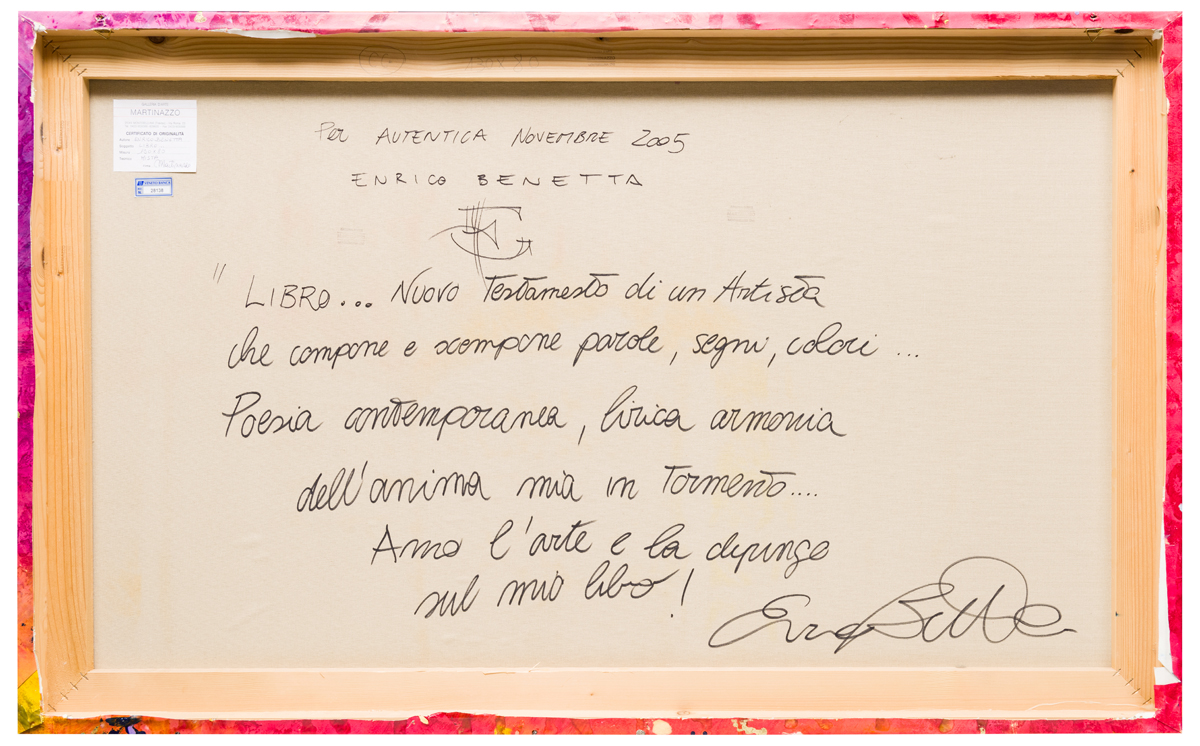 MARTINAZZO
CERTIFICATO DI ORIGINALITÀ
Per AUTENTICA NOVEMBRE 2005
ENRICO BENETTA
" LIBRO... Nuovo Testamento di un Artista
che compone e scompone parole, segni, colori ...
Poesia contemporanea, lirica armonia
dell'anima mia in Tormento....
Amo l'arte e la dipingo
sul mio libro!